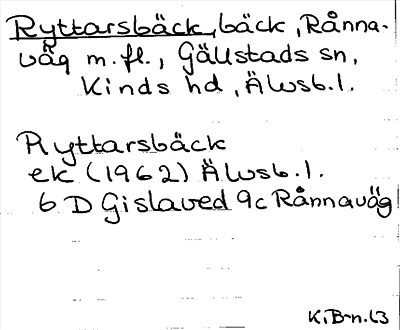 Ryttarsbäck, bäck, Rånna-
väg m.fl., Gällstads sn,
Kinds hd, Älvsb.l.
Ryttarsbäck
ek (1962) Älvsb.l.
6 D Gislaved 9c Rånnaväg
K.B-n.63